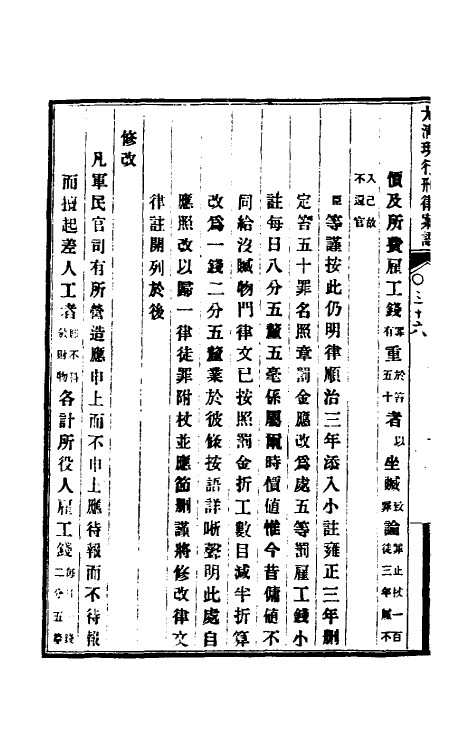 大清現行刑律案語
三十六
價及所費雇工錢罪有重於笞五十者以坐贓致罪論罪止杖一百徒三年贓不
入己故不還官
臣等謹按此仍明律順治三年添入小註雍正三年刪
定笞五十罪名照章罰金應改爲處五等罰雇工錢小
註每日八分五釐五毫係屬爾時價値惟今昔傭値不
同給沒贓物門律文已按照罰金折工數目減半折算
改爲一錢二分五釐業於彼條按語詳晰聲明此處自
應照改以歸一律徒罪附杖並應節刪謹將修改律文
律註開列於後
修改
凡軍民官司有所營造應申上而不申上應待報而不待報
而擅起差人工者即不科斂財物各計所役人雇工錢每日一錢二分五釐